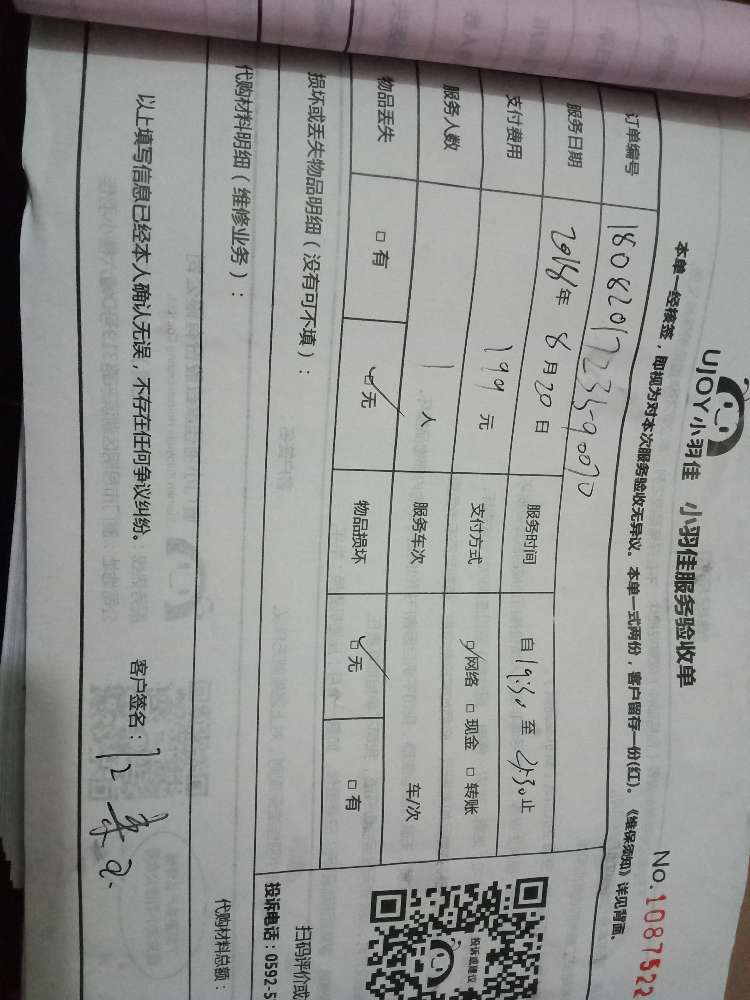 UJOY小羽佳 小羽佳服务验收单
No.1087522
本单一经核签，即视为对本次服务验收无异议。本单一式两份，客户留存一份(红)。《维保须知》详见背面。
订单编号
服务日期 2018年 8月20日 服务时间 自19:30至21:30止
支付费用 199元 支付方式 ☑网络 □现金 □转账
服务人数 1人 服务车次 车/次
物品丢失 □有 ☑无 物品损坏 ☑无 □有
损坏或丢失物品明细（没有可不填）：
代购材料明细（维修业务）：
代购材料总额：
以上填写信息已经本人确认无误，不存在任何争议纠纷。
客户签名：
投诉或建议
扫码评价或
投诉电话：0592-5